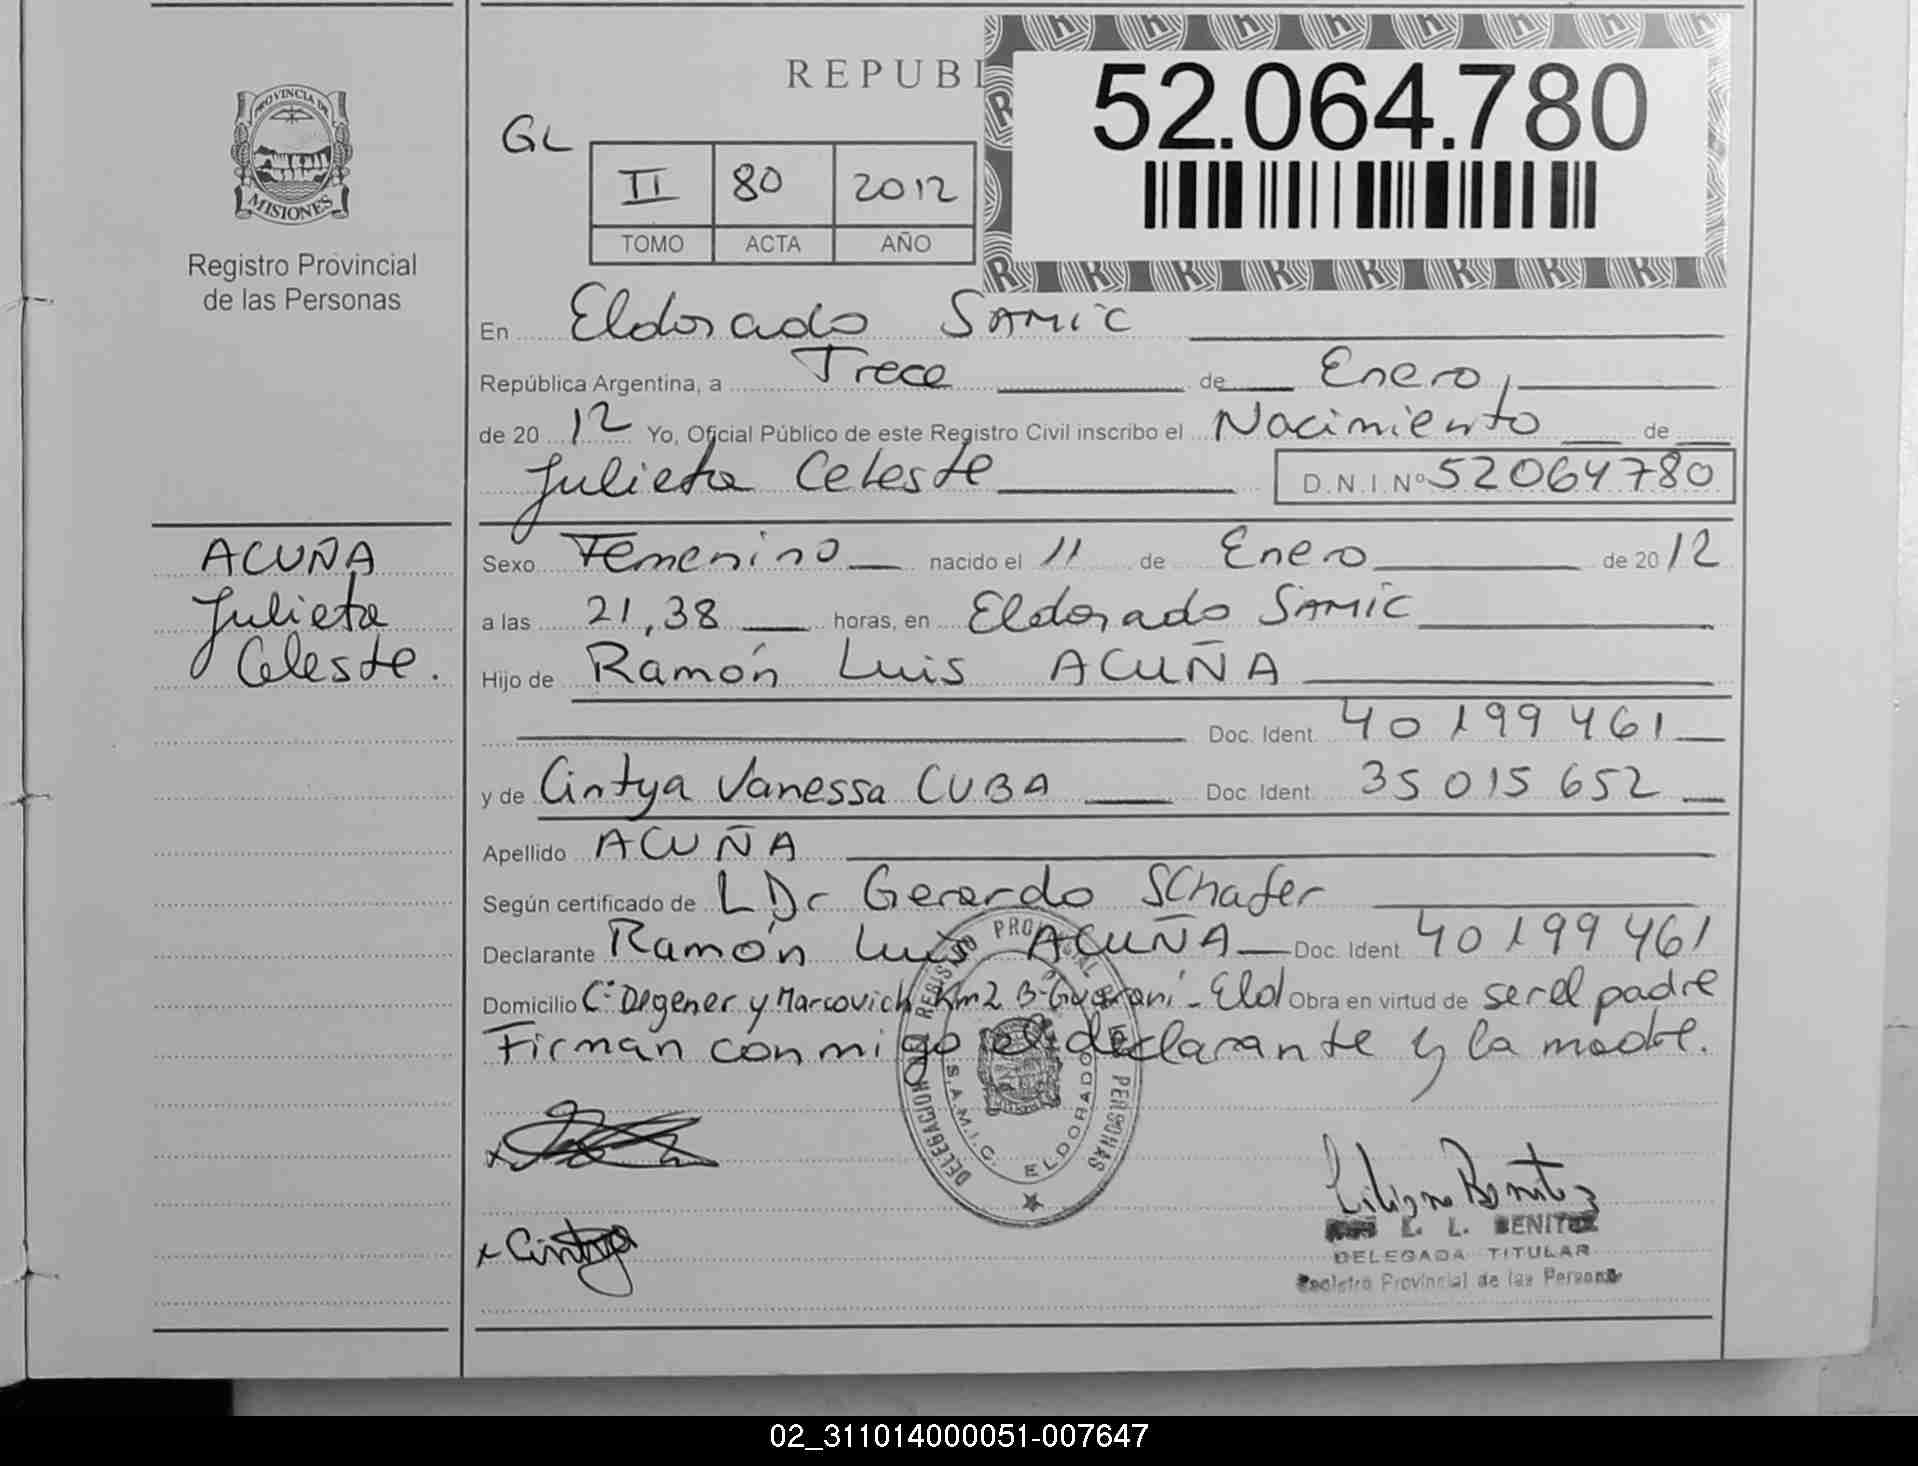 PROVINCIA DE
MISIONES
Registro Provincial
de las Personas
REPUBL
52.064.780
GL
II 80 2012
TOMO ACTA AÑO
En Eldorado SAMIC
República Argentina, a Trece de Enero,
de 20 12 Yo, Oficial Público de este Registro Civil inscribo el Nacimiento de
Julieta Celeste D.N.I.Nº 52064780
ACUÑA
Julieta
Celeste.
Sexo Femenino nacido el 11 de Enero de 20 12
a las 21,38 horas, en Eldorado SAMIC
Hijo de Ramón Luis ACUÑA
Doc. Ident. 40199461
y de Cintya Vanessa CUBA Doc. Ident. 35015652
Apellido ACUÑA
Según certificado de Dr Gerardo Schafer
Declarante Ramón Luis ACUÑA Doc. Ident. 40199461
Domicilio C: Degener y Marcovich Km2 B-Guaraní - Eld Obra en virtud de ser el padre
Firman conmigo el declarante y la madre.
DELEGACION DEL REGISTRO PROVINCIAL DE LAS PERSONAS
S.A.M.I.C. ELDORADO
x
x Cintya
Liliana Benitez
L. L. BENITEZ
DELEGADA TITULAR
Registro Provincial de las Personas
02_311014000051-007647